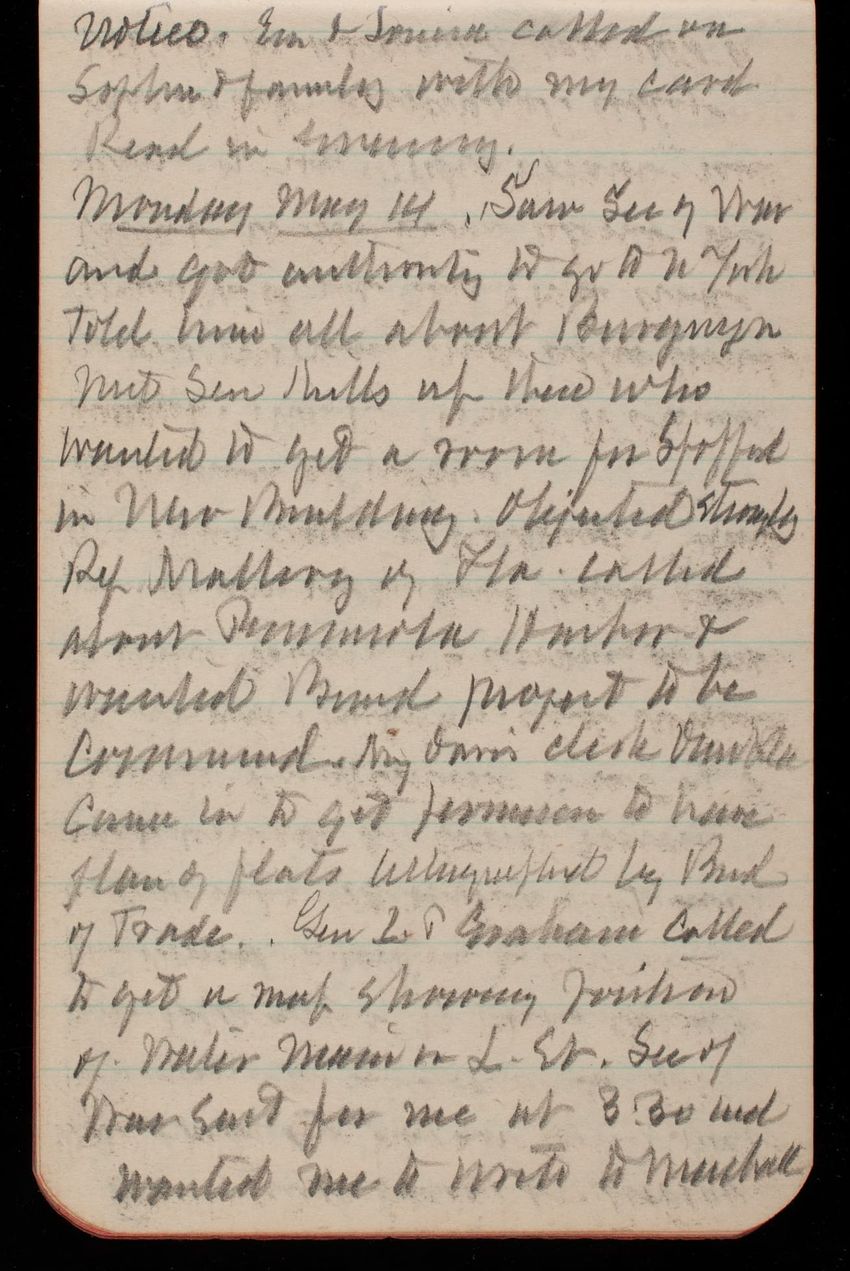 notice. Em & Louise called on
Sophie & family with my card
Read in evening.
Monday May 14. Saw Sec of War
and got authority to go to N York
Told him all about Burgwyn
Met Sen Mills up there who
wanted to get a room for Spofford
in New Building. Objected strongly
Rep Mallory of Fla. called
about Pensacola Harbor &
wanted Board project to be
Commend. Maj Davis clerk
Came in to get permission to have
plan of flats lithographed by Bord
of Trade. Gen L. P Graham called
to get a map showing position
of Water Main on L. St. Sec of
War sent for me at 3:30 and
wanted me to write to Marshall